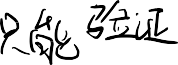 只能验证